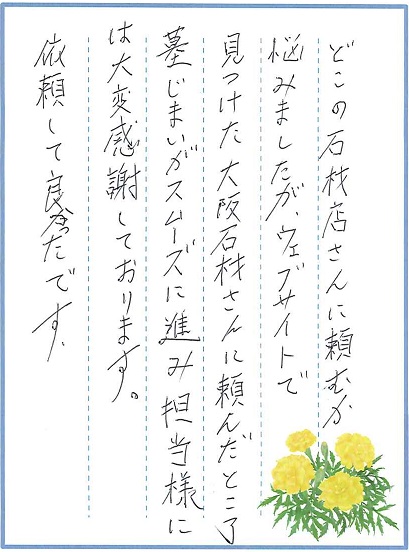 どこの石材店さんに頼むか
悩みましたが、ウェブサイトで
見つけた大阪石材さんに頼んだところ
墓じまいがスムーズに進み担当様に
は大変感謝しております。
依頼して良かったです。